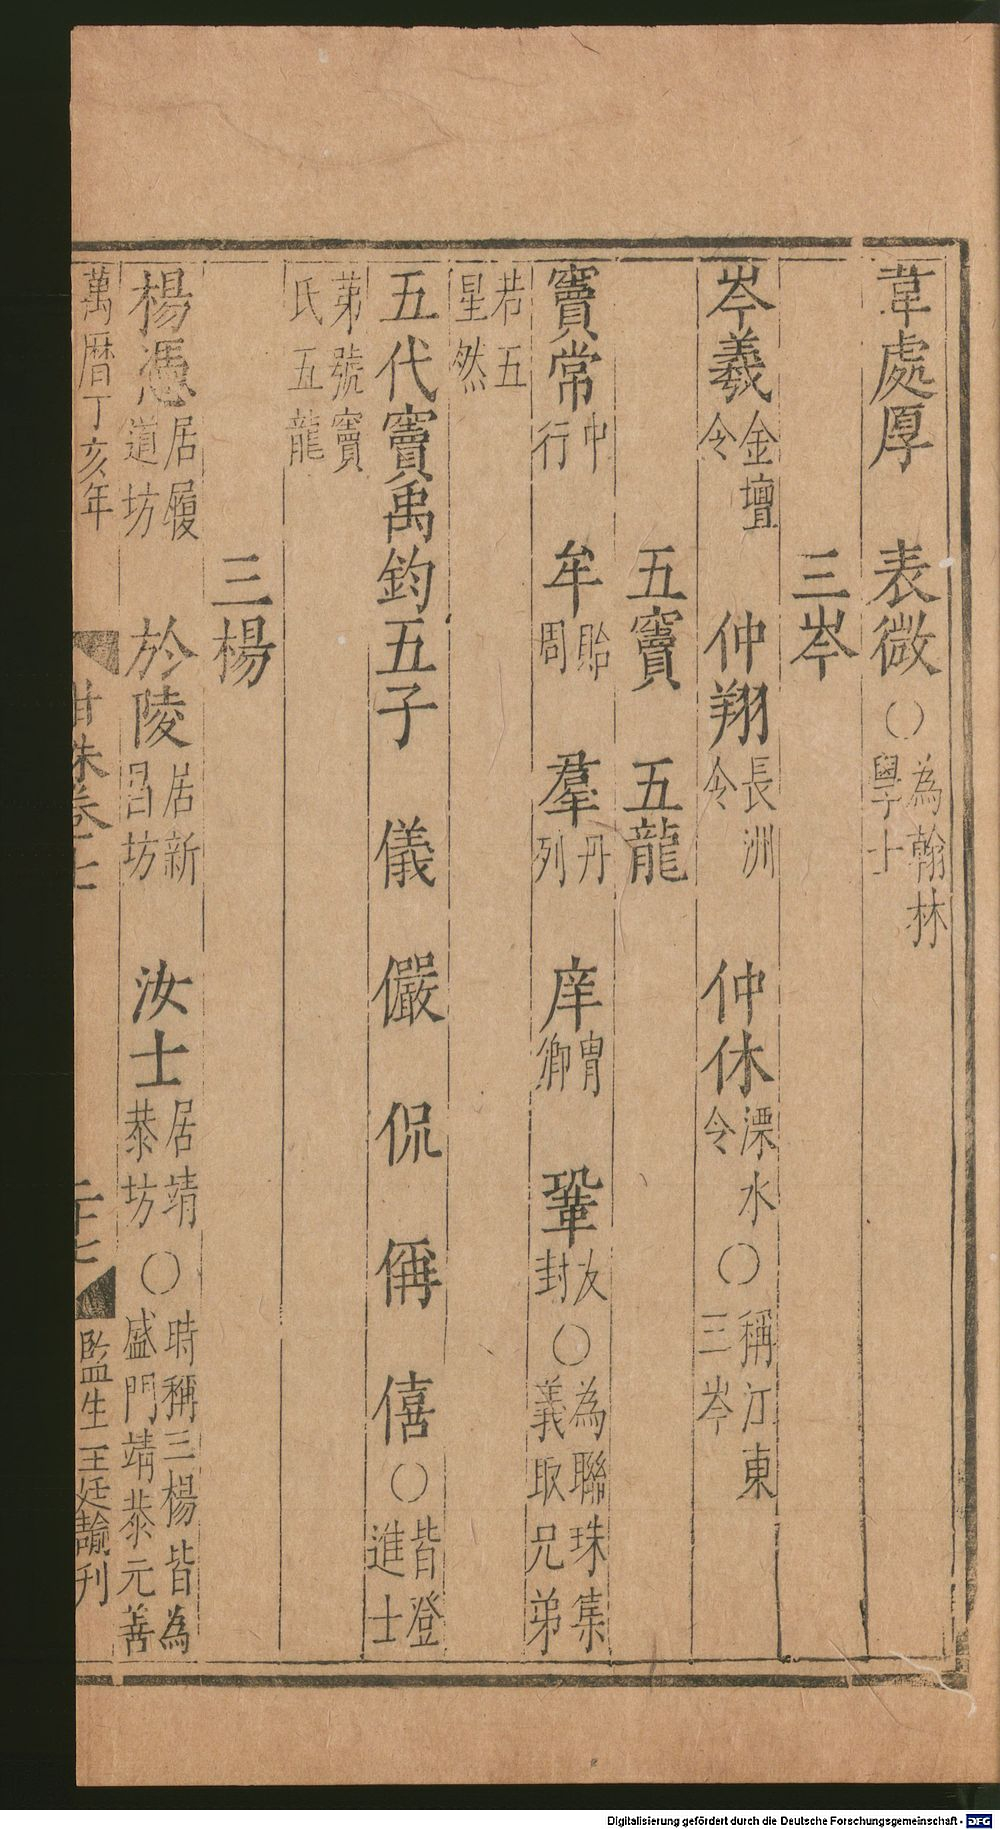 韋處厚　表微○為翰林學士
三岑
岑羲金壇令　仲翔長洲令　仲休溧水令○稱江東三岑
五竇　五龍
竇常中行　牟貽周　羣丹列　庠胄卿　鞏友封○為聯珠集義取兄弟
若五星然
五代竇禹鈞五子　儀　儼　侃　偁　僖○皆登進士
弟號竇氏五龍
三楊
楊憑居履道坊　於陵居新昌坊　汝士居靖恭坊○時稱三楊皆為盛門靖恭元善
萬曆丁亥年　甘珠卷十七　二十七　監生王廷諭刊
Digitalisierung gefördert durch die Deutsche Forschungsgemeinschaft - DFG